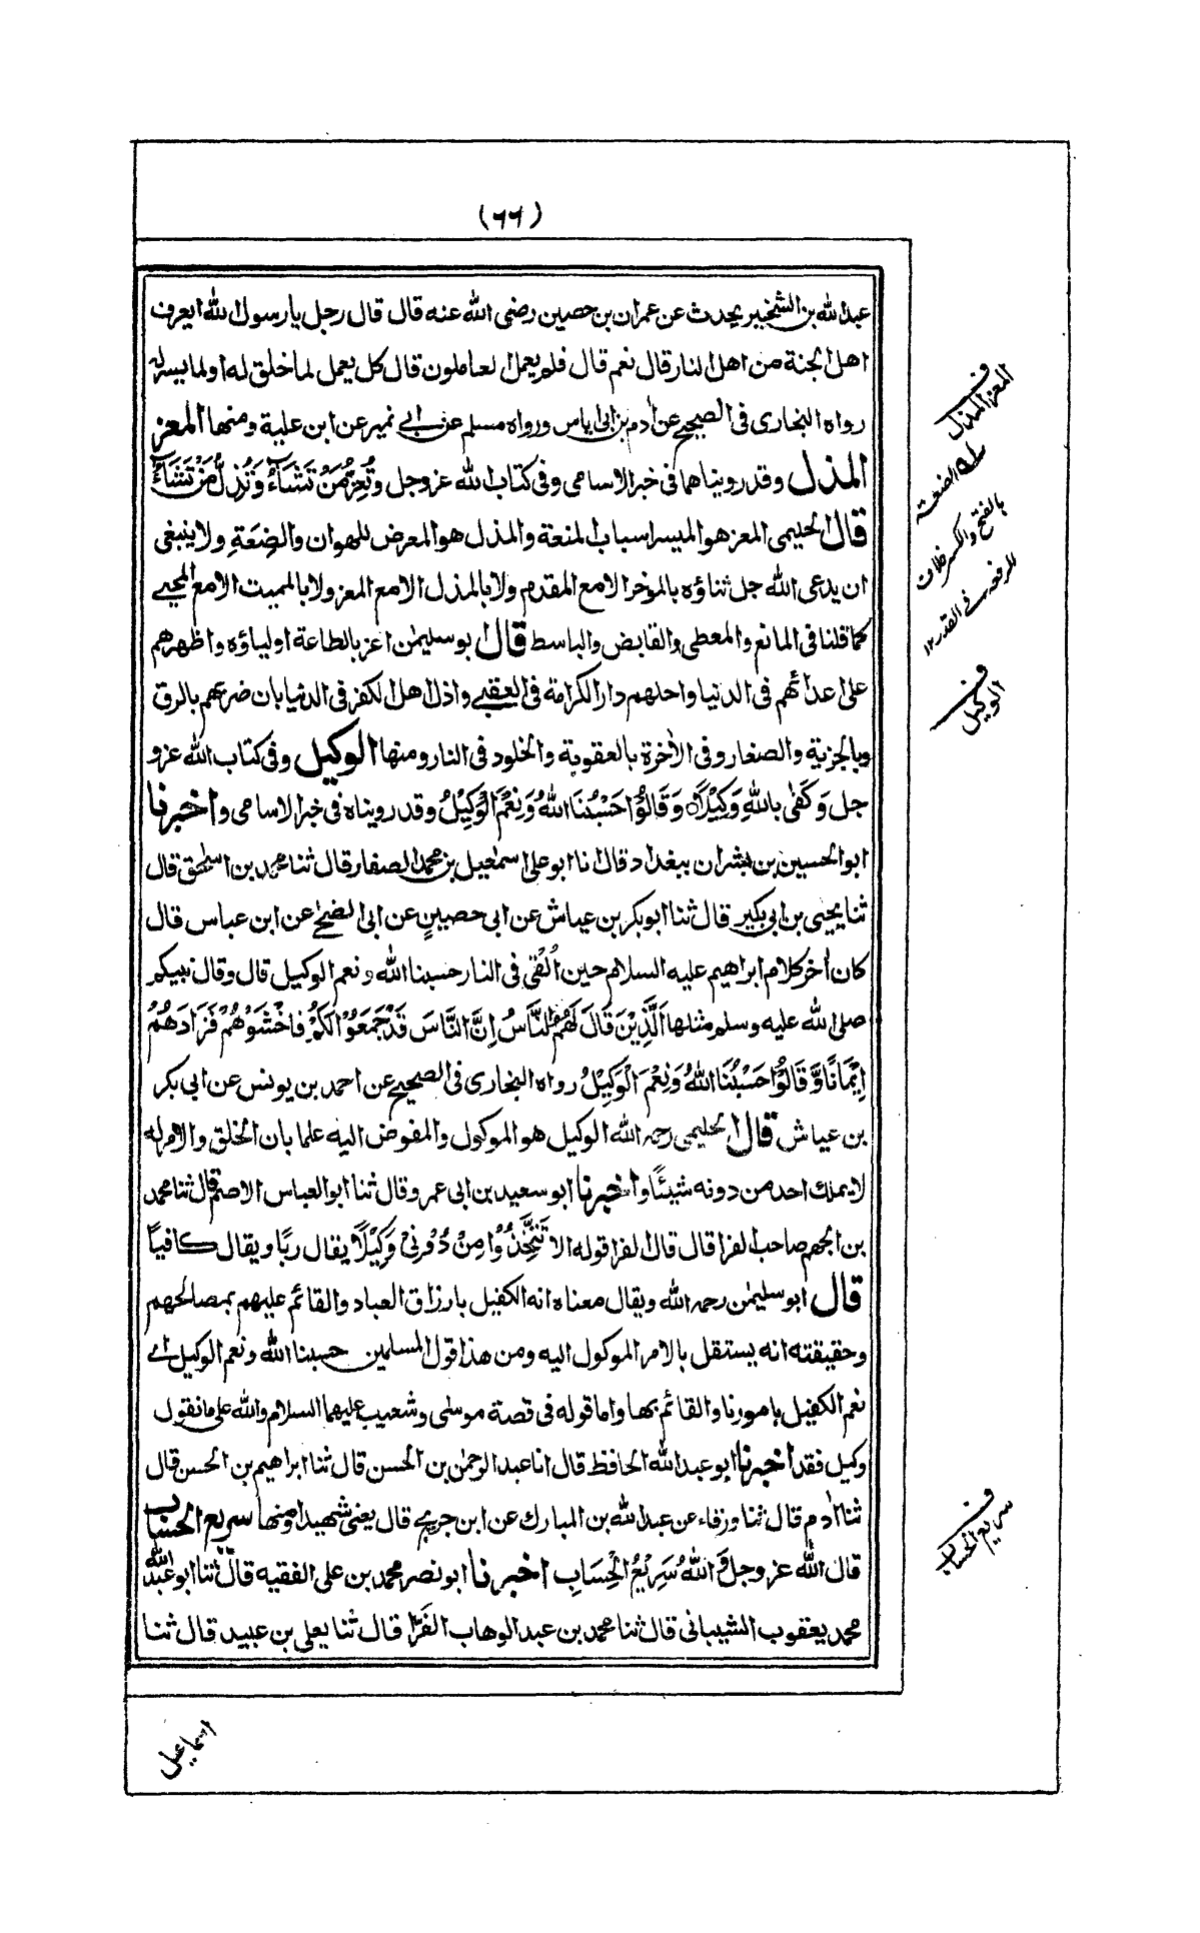 (٦٦)
عبد الله بن الشخير يحدث عن عمران بن حصين رضى الله عنه قال قال رجل يا رسول الله ايعرف
اهل الجنة من اهل النار قال نعم قال فلم يعمل العاملون قال كل يعمل لما خلق له او لما يسر له
رواه البخارى فى الصحيح عن ادم بن ابى اياس ورواه مسلم عن ابن نمير عن ابن علية ومنها المعز
المذل وقد رويناهما فى خبر الاسامى وفى كتاب الله عز وجل وَتُعِزُّ مَنْ تَشَآءُ وَتُذِلُّ مَنْ تَشَآءُ
قال الحليمى المعز هو الميسر اسباب المنعة والمذل هو المعرض للهوان والضِعَةِ ولا ينبغى
ان يدعى الله جل ثناؤه بالمؤخر الا مع المقدم ولا بالمذل الا مع المعز ولا بالمميت الا مع المحيى
كما قلنا فى المانع والمعطى والقابض والباسط قال ابو سليمٰن اعز بالطاعة اولياؤه واظهرهم
على اعدائهم فى الدنيا واحلهم دار الكرامة فى العقبى واذل اهل الكفر فى الدنيا بان ضربهم بالرق
وبالجزية والصغار وفى الآخرة بالعقوبة والخلود فى النار ومنها الوكيل وفى كتاب الله عز و
جل وَكَفٰى بِاللهِ وَكِيْلًا وَقَالُوْا حَسْبُنَا اللهُ وَنِعْمَ الْوَكِيْلُ وقد رويناه فى خبر الاسامى واخبرنا
ابو الحسين بن بشران ببغداد قال انا ابو على اسمٰعيل بن محمد الصفار قال ثنا محمد بن اسحٰق قال
ثنا يحيى بن ابى بكير قال ثنا ابو بكر بن عياش عن ابى حصينٍ عن ابى الضحىٰ عن ابن عباس قال
كان اٰخر كلام ابراهيم عليه السلام حين اُلْقى فى النار حسبنا الله ونعم الوكيل قال وقال نبيكم
صلى الله عليه وسلم مثلها اَلَّذِيْنَ قَالَ لَهُمُ النَّاسُ اِنَّ النَّاسَ قَدْ جَمَعُوْا لَكُمْ فَاخْشَوْهُمْ فَزَادَهُمْ
اِيْمَانًا وَّقَالُوْا حَسْبُنَا اللهُ وَنِعْمَ الْوَكِيْلُ رواه البخارى فى الصحيح عن احمد بن يونس عن ابى بكر
بن عياش قال الحليمى رحمه الله الوكيل هو الموكول والمفوض اليه علما بان الخلق والامر له
لا يملك احد من دونه شيئًا واخبرنا ابو سعيد بن ابى عمرو قال ثنا ابو العباس الاصم قال ثنا محمد
بن الجهم صاحب الفرا قال قال الفرا قوله الا تَتَّخِذُوْا مِنْ دُوْنِىْ وَكِيْلًا يقال ربًا ويقال كافيًا
قال ابو سليمٰن رحمه الله ويقال معناه انه الكفيل بارزاق العباد والقائم عليهم بمصالحهم
وحقيقته انه يستقل بالامر الموكول اليه ومن هذا قول المسلمين حسبنا الله ونعم الوكيل اى
نعم الكفيل بامورنا والقائم بها واما قوله فى قصة موسى وشعيب عليهما السلام والله على ما نقول
وكيل فقد اخبرنا ابو عبد الله الحافظ قال انا عبد الرحمٰن بن الحسن قال ثنا ابراهيم بن الحسن قال
ثنا اٰدم قال ثنا ورقاء عن عبد الله بن المبارك عن ابن جريج قال يعنى شهيدا ومنها سريع الحساب
قال الله عز وجل وَ اللهُ سَرِيْعُ الْحِسَابِ اخبرنا ابو نصر محمد بن على الفقيه قال ثنا ابو عبد الله
محمد يعقوب الشيبانى قال ثنا محمد بن عبد الوهاب الفَرّا قال ثنا يعلى بن عبيد قال ثنا
ف المعز المذل
له الضعة
بالفتح والكسر خلاف
الرفعة فى القدر ١٢
ف الوكيل
ف سريع الحساب
اسماعيل